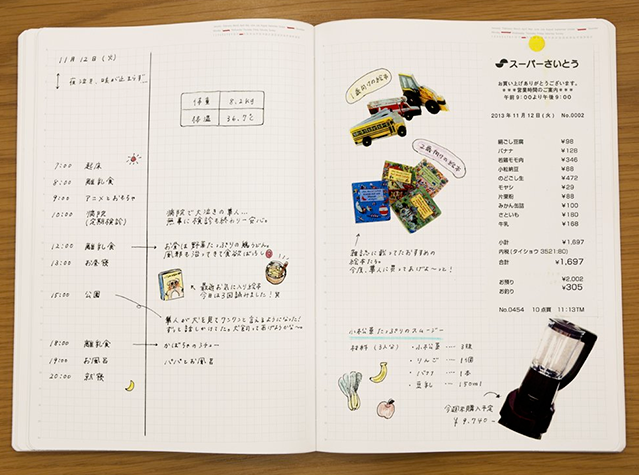 11月12日(火)
体重 8.2kg
体温 36.7℃
7:00 起床
8:00 離乳食
9:00 アニメとおもちゃ
10:00 病院
(定期検診)
病院で大泣きの隼人…
無事に検診も終わり一安心。
12:00 離乳食
お昼は野菜たっぷりの鶏うどん。
風邪も治ってきて食欲ばっちり
13:00 お昼寝
最近お気に入り絵本
今日は3回読みました!
15:00 公園
隼人が犬を見てワンワンと言えるようになった!
18:00 離乳食
かぼちゃのシチュー
19:00 お風呂
パパとお風呂
20:00 就寝
1歳向けの絵本
2歳向けの絵本
雑誌に載ってたおすすめの
絵本たち。
今度、隼人に買ってあげよ〜っと!
小松菜たっぷりのスムージー
材料(3人分)
・小松菜 … 3株
・りんご … 1/2個
・バナナ … 1本
・豆乳 … 150ml
今週末購入予定
¥9,740-
スーパーさいとう
お買い上げありがとうございます。
***営業時間のご案内***
午前9:00より午後9:00
2013年11月12日(火) No.0002
絹ごし豆腐 ¥98
バナナ ¥128
若鶏モモ肉 ¥346
小松菜 ¥88
のどごし生 ¥472
モヤシ ¥29
片栗粉 ¥88
みかん缶詰 ¥100
さといも ¥180
牛乳 ¥168
小計 ¥1,697
内税(タイショウ 3521:80)
合計 ¥1,697
お預り ¥2,002
お釣り ¥305
No.0454 10点買 11:13TM